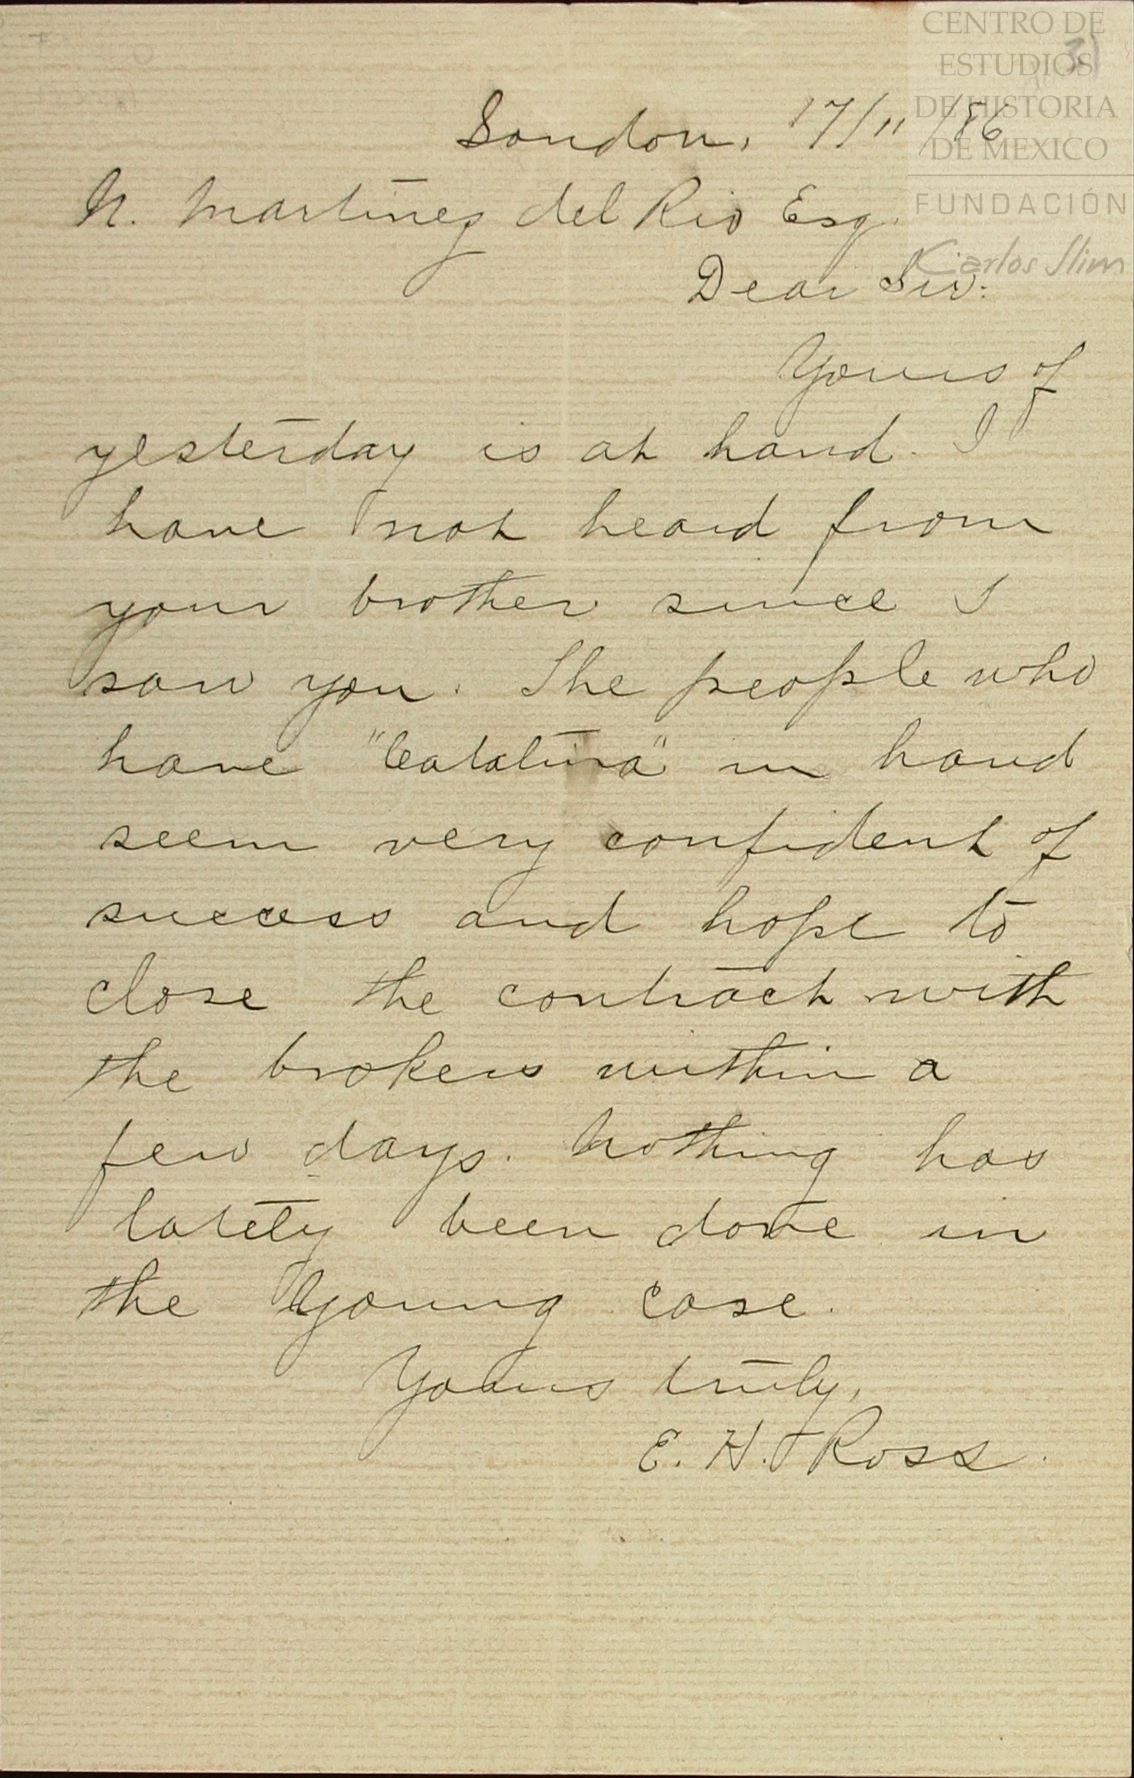 CENTRO DE
ESTUDIOS
DE HISTORIA
DE MEXICO
FUNDACIÓN
Carlos Slim
London, 17/11/86
N. Martinez del Rio Esq.
Dear Sir:
Yours of
yesterday is at hand. I
have not heard from
your brother since I
saw you. The people who
have "Catalina" in hand
seem very confident of
success and hope to
close the contract with
the brokers within a
few days. Nothing has
lately been done in
the Young case.
Yours truly,
E. H. Ross.